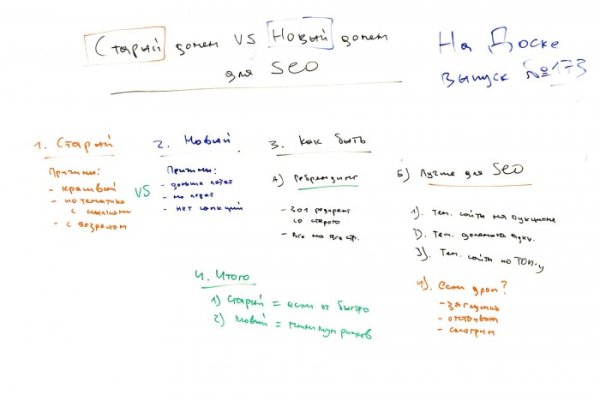 Старый домен VS Новый домен
для SEO
На Доске
выпуск №173
1. Старый
Причины:
- красивый
- по тематике
с ссылками
- с возрастом
VS
2. Новый
Причины:
- дольше
- не
- нет санкций
3. Как быть
А) Ребрендинг
- 301 редирект
со старого
- Все на все стр.
Б) Лучше для SEO
1). Тем. сайты на аукционе
2). Тем. домены аукц.
3). Тем. сайты по ТОП-у
4). если дроп?
- заглушка
- отстоять
- смотрим
4. Итого
1) Старый = если ог быстро
2) Новый = минимум рисков